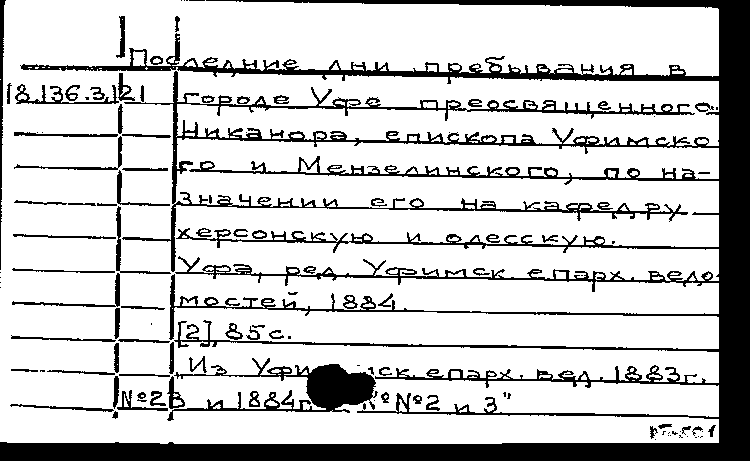 Последние дни пребывания в
18.136.3.121 городе Уфе преосвященного
Никанора, епископа Уфимско
го и Мензелинского, по на-
значении его на кафедру
херсонскую и одесскую.
Уфа, ред. Уфимск епарх. ведо
мостей, 1884.
[2], 85с.
"Из епарх. вед. 1883г.
№23 и 1884г. №№2 и 3"